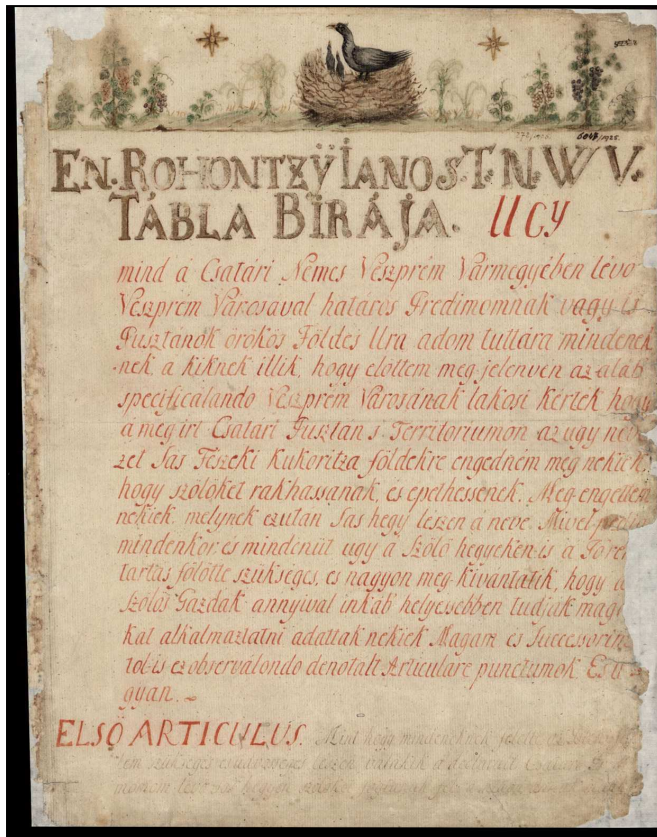 6047/1925.
EN. ROHONTZŸ IANOS. T. N. W. V.
TÁBLA BIRÁJA. UGY
mind á Csatári Nemes Veszprém Vármegyében lévő
Veszprém Városával határos Prediumomnak vagy is
Pusztanok örökös Földes Ura adom tuttára mindenek
-nek, a kiknek illik, hogy előttem meg jelenvén az aláb
specificálando Veszprém Városának lakosi kértek hogy
á meg irt Csatári Pusztán s Territoriumon az ugy nev
zet Sas Feszeki Kukoritza földekre engedném meg nekiek,
hogy szőlőket rakhassanak, és epethessenek. Meg engettem
nekiek, melynek ezután Sas hegy leszen á neve. Mivel
mindenkor és mindenüt ugy á Szőlő hegyeken is a Töre
tartás fölötte szükséges, es nagyon meg kivántatik, hogy a
Szőlős Gazdak annyiwal inkáb helyesebben tudják mag
kat alkalmaztatni adattak nekiek Magam es Successorim
tol-is ez observálondo denotalt Articulare punctumok. Es u
gyan.
ELSŐ ARTICULUS. Mint hogy mindeneknek felette